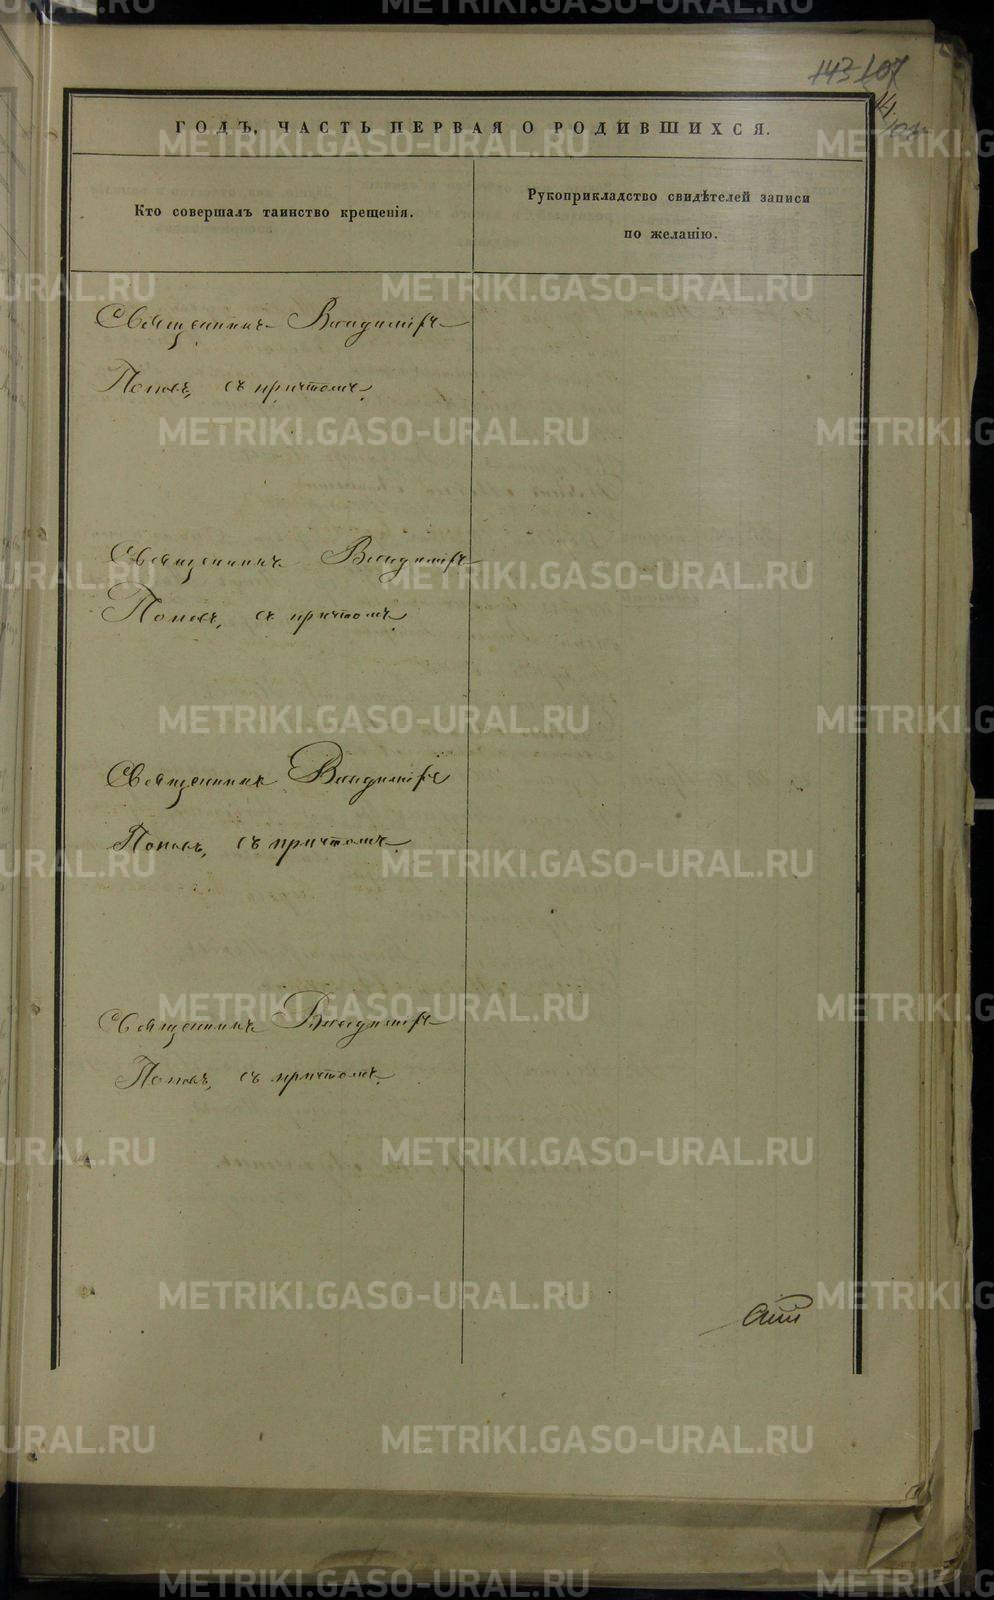 143 107
14.
ГОДЪ, ЧАСТЬ ПЕРВАЯ О РОДИВШИХСЯ.
Кто совершалъ таинство крещенія.
Рукоприкладство свидѣтелей записи
по желанію.
Священникъ Владиміръ
Поповъ, съ причтомъ.
Священникъ Владиміръ
Поповъ, съ причтомъ.
Священникъ Владиміръ
Поповъ, съ причтомъ.
Священникъ Владиміръ
Поповъ, съ причтомъ.
METRIKI.GASO-URAL.RU